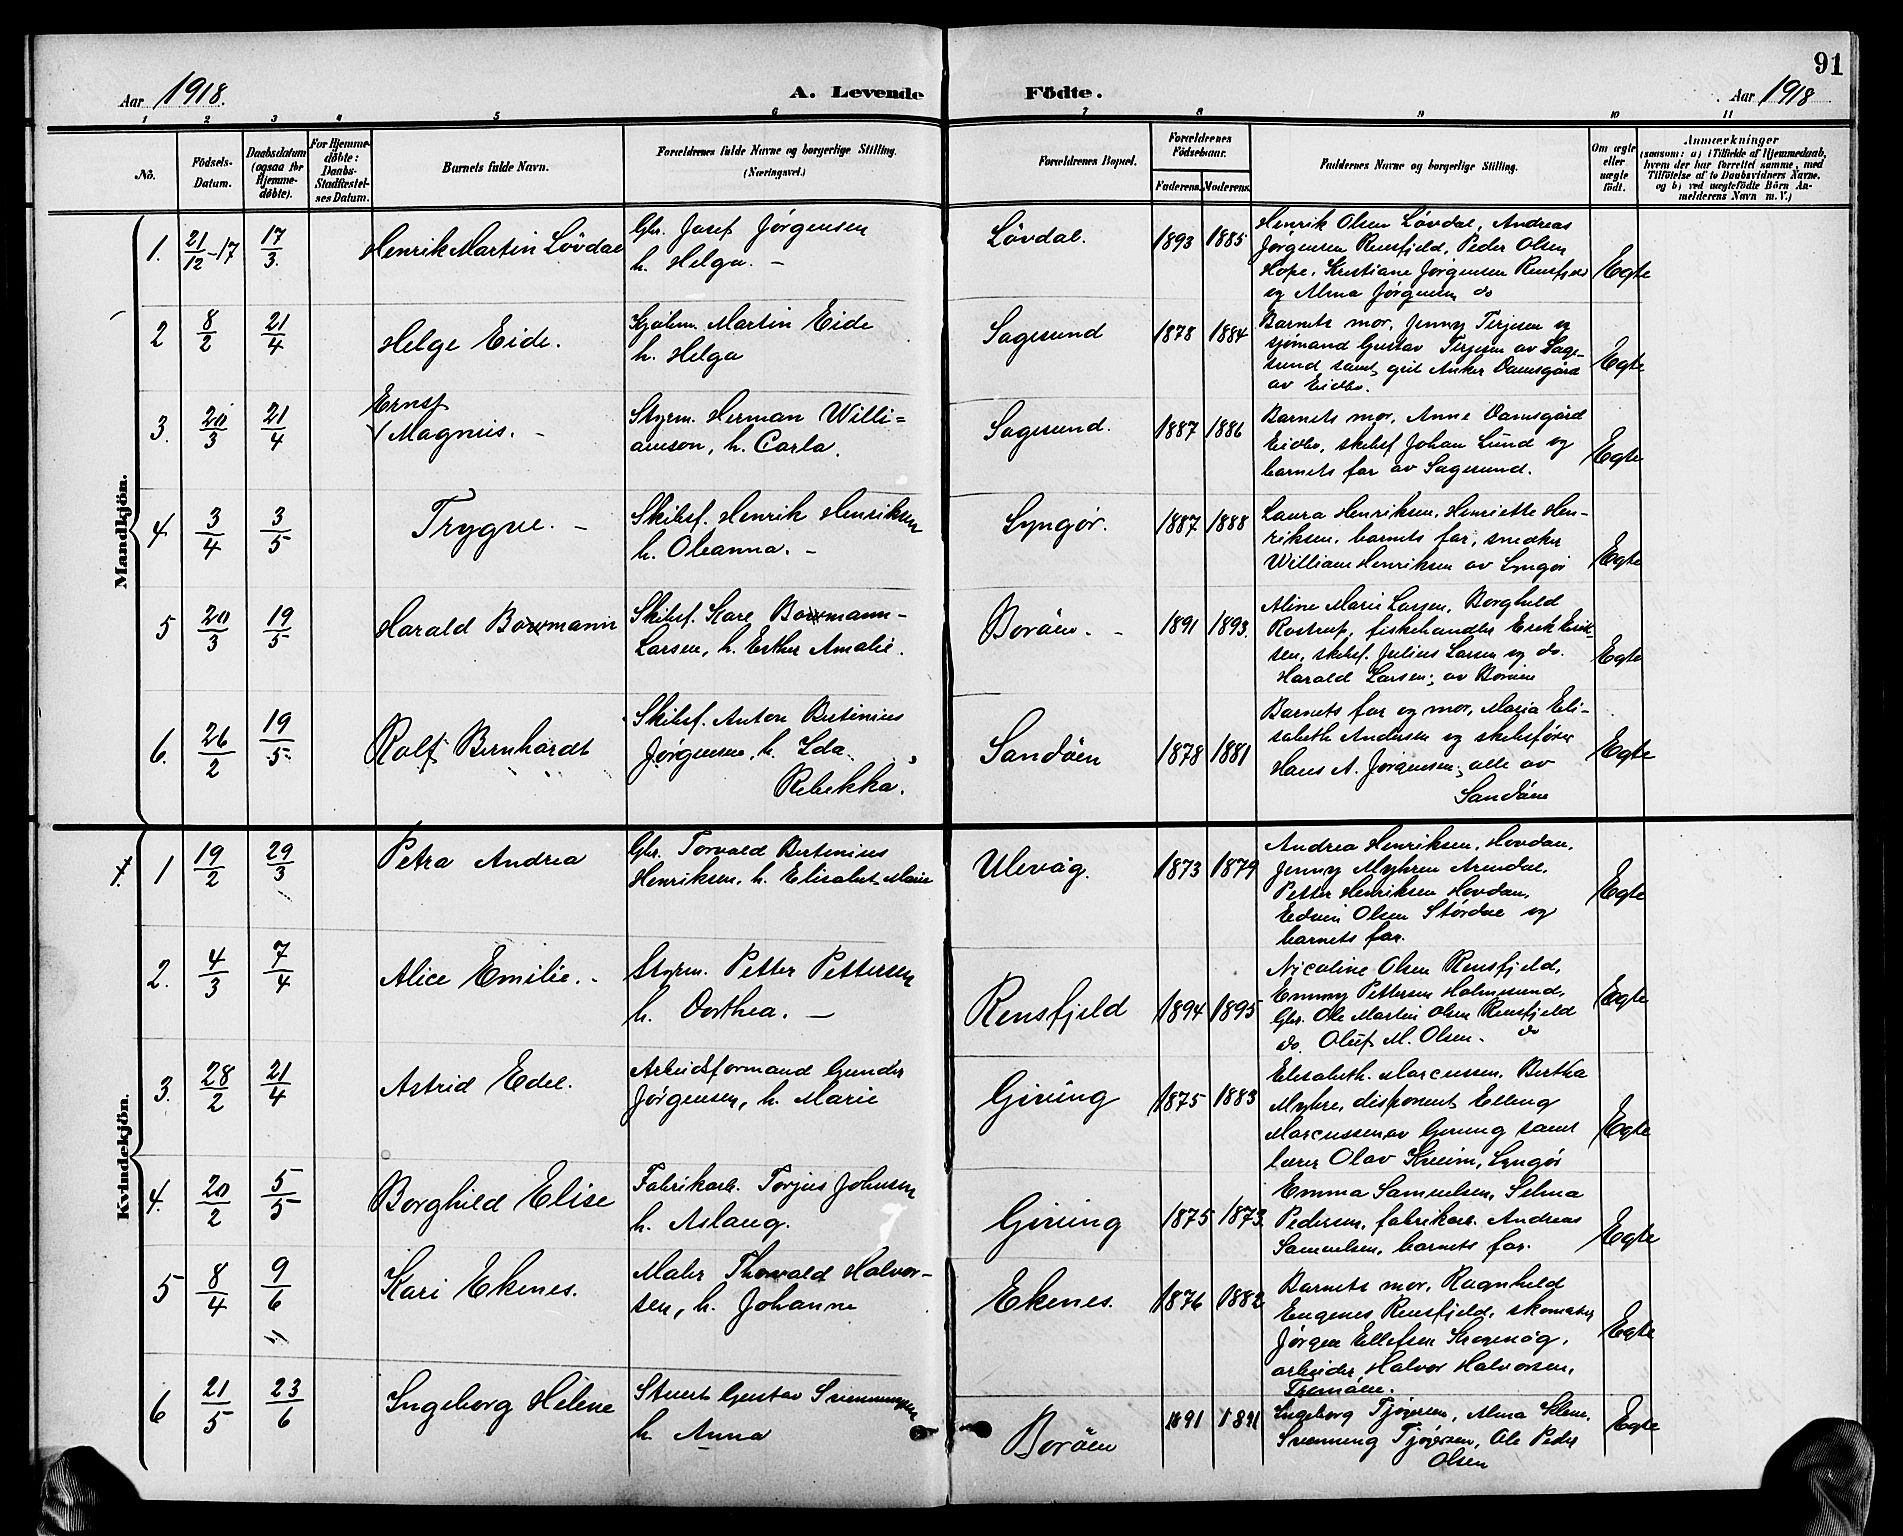 91
Aar 1918.
A. Levende Födte.
Aar 1918
1 2 3 4 5 6 7 8 9 10 11
No.
Födsels-Datum.
Daabsdatum (ogsaa for Hjemmedöbte).
For Hjemmedöbte: Daabs-Stadfæstelses Datum.
Barnets fulde Navn.
Forældrenes fulde Navne og borgerlige Stilling.
(Næringsvei.)
Forældrenes Bopæl.
Forældrenes Födselsaar.
Faderens. Moderens.
Faddernes Navne og borgerlige Stilling.
Om ægte eller uægte födt.
Anmærkninger
(saasom: a) i Tilfælde af Hjemmedaab,
hvem der har forrettet samme, med
Tilföielse af to Daabsvidners Navne,
og b) ved uægtefödte Börn Anmelderens Navn m. V.)
Mandkjön.
1. 21/12-17 17/3. Henrik Martin Lövdal
Gbr. Josef Jørgensen
h. Helga. –
Lövdal. 1893 1885
Henrik Olsen Lövdal, Andreas
Jørgensen Rensfjeld, Peder Olsen
Hope, Kristiane Jørgensen Rensfjeld
og Alma Jørgensen do
Egte
2 8/2 21/4 Helge Eide.
Martin Eide
h. Helga
Sagesund 1878 1884
Barnets mor, Jenny Terjesen og
sjømand Gustav Terjesen av Sage-
sund samt Anker Damsgård
av Eidbo.
Egte
3. 20/3 21/4 Ernst
Magnus. –
Styrm. Herman Willi=
amson, h. Carla.
Sagesund. 1887 1886
Barnets mor, Anne Damsgård
Eidbo, skibsf Johan Lund og
barnets far av Sagesund.
Egte
4 3/4 3/5 Trygve. –
Skibsf. Henrik Henriksen
h. Oleanna. –
Lyngør. 1887 1888
Laura Henriksen, Henriette Hen-
riksen, barnets far, snedker
William Henriksen av Lyngør
Egte
5 20/3 19/5 Harald Bowmann
Skibsf. Kare Bowmann-
Larsen, h. Esther Amalie.
Boröen. – 1891 1893.
Aline Marie Larsen, Borghild
Rostrup, fiskehandler Erik Erik-
sen, skibsf. Julius Larsen og do.
Harald Larsen, av Boröen
Egte
6. 26/2 19/5 Rolf Bernhardt
Skibsf. Anton Bertinius
Jørgensen, h. Ida
Rebekka.
Sandöen 1878 1881
Barnets far og mor, Maria Eli-
sabeth Andersen og skibsfører
Hans A. Jørgensen, alle av
Sandöen
Egte
Kvindekjön.
1 19/2 29/3 Petra Andrea
Gbr. Torvald Bertinius
Henriksen, h. Elisabet Marie
Ulevåg. 1873 1879
Andrea Henriksen, Hovdan,
Jenny Myhren Arendal,
Petter Henriksen Hovdan,
Edvin Olsen Stördal og
barnets far.
Egte
2. 4/3 7/4 Alice Emilie. –
Styrm. Petter Pettersen
h. Dorthea. –
Rensfjeld 1894 1895
Nicoline Olsen Rensfjeld,
Emmy Pettersen Holmesund,
Gbr. Ole Martin Olsen Rensfjeld
do. Oluf M. Olsen. do
Egte
3. 28/2 21/4 Astrid Edel.
Arbeidsformand Gunder
Jørgensen, h. Marie
Giving 1875 1883
Elisabeth Marcussen, Bertha
Myhre, disponent Elling
Marcussen av Giving samt
lærer Olav Kveim, Lyngør
Egte
4. 20/2 5/5 Borghild Elise
Fabrikarb. Torjus Johnsen
h. Aslaug.
Giving 1875 1873
Emma Samuelsen, Selma
Pedersen, fabrikarb. Andreas
Samuelsen, barnets far.
Egte
5 8/4 9/6 Kari Ekenes.
Maler Thorvald Halvor-
sen, h. Johanne
Ekenes. 1876 1882
Barnets mor, Ragnhild
Eugenes Rensfjeld, skomaker
Jørgen Ellefsen
arbeider Halvor Halvorsen,
Tremöen.
Egte
6 21/5 23/6 Ingeborg Helene
Stuert Gustav Svenningsen
h. Anna
Boröen 1891 1891
Ingeborg Tjøversen, Alma
Svenning Tjøversen, Ole Peder
Olsen
Egte